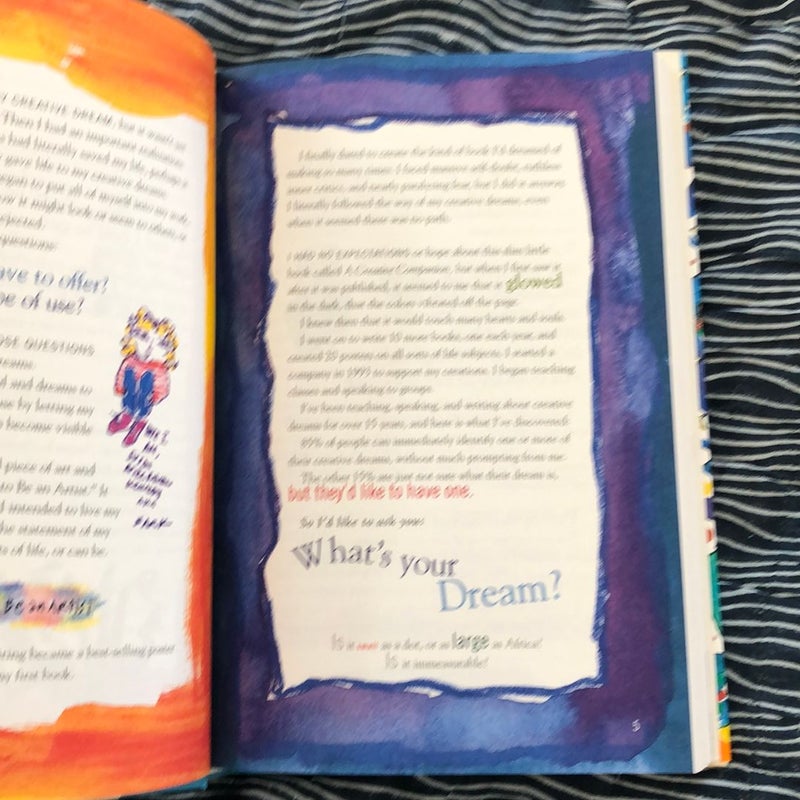 Y CREATIVE DREAM, but it wasn't
Then I had an important
had literally saved my life,
gave life to my creative dream.
began to put all of myself into my
how it might look or seem to others, or
rejected.
questions:
ave to offer?
be of use?
OSE QUESTIONS
dreams.
d and dreams to
me by letting my
become visible
piece of art and
to Be an Artist." It
I intended to live my
the statement of my
of life, or can be.
BE AN ARTIST
became a best-selling poster
my first book.
I finally dared to create the kind of book I'd dreamed of
making so many times. I faced massive self-doubt, ruthless
inner critics, and nearly paralyzing fear, but I did it anyway.
I literally followed the way of my creative dream, even
when it seemed there was no path.
I HAD NO EXPECTATIONS or hope about this dear little
book called A Creative Companion, but when I first saw it
after it was published, it seemed to me that it glowed
in the dark, that the colors vibrated off the page.
I knew then that it would touch many hearts and souls.
I went on to write 10 more books, one each year, and
created 25 posters on all sorts of life subjects. I started a
company in 1995 to support my creations. I began teaching
classes and speaking to groups.
I've been teaching, speaking, and writing about creative
dreams for over 15 years, and here is what I've discovered:
85% of people can immediately identify one or more of
their creative dreams, without much prompting from me.
The other 15% are just not sure what their dream is,
but they'd like to have one.
So I'd like to ask you:
What's your
Dream?
Is it small as a dot, or as large as Africa?
Is it immeasurable?
5